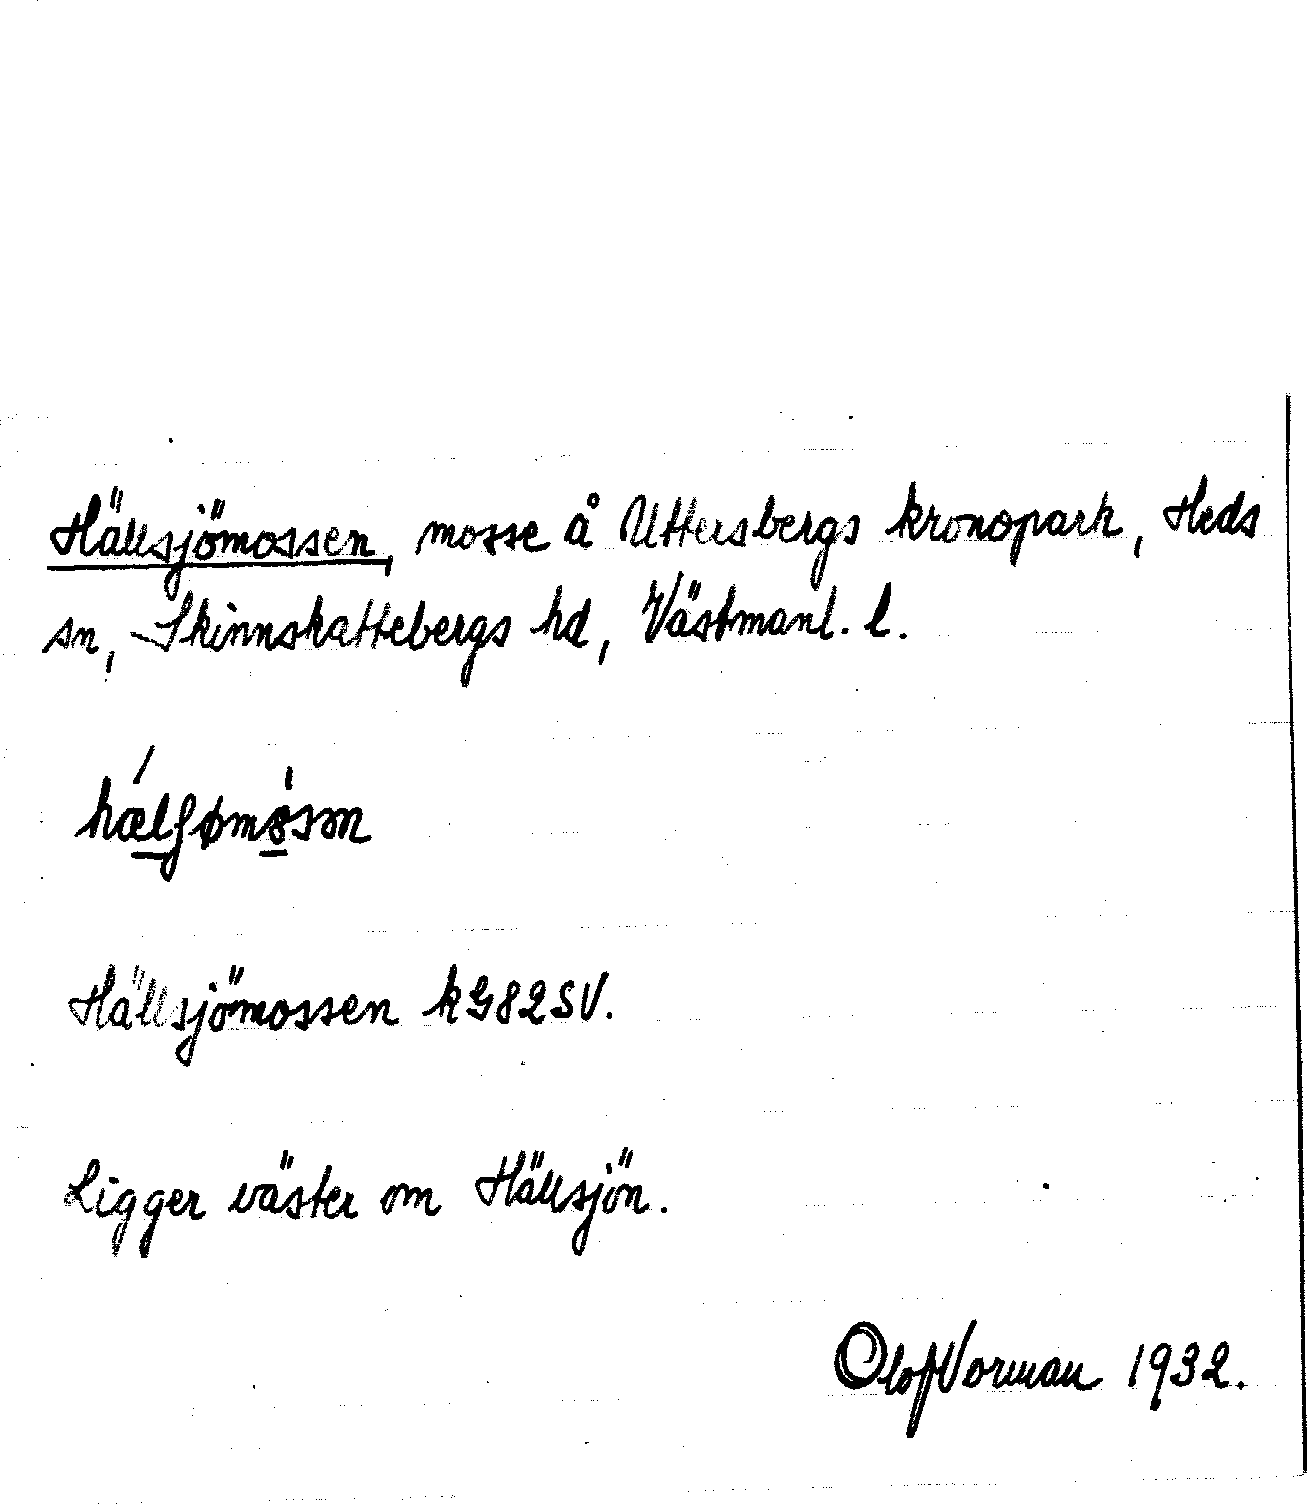 Hällsjömossen, mosse å Uttersbergs kronopark, Heds
sn, Skinnskattebergs hd, Västmanl. l.
hælʃømòsən
Hällsjömossen kG82SV.
Ligger väster om Hällsjön.
Olof Vorman 1932.